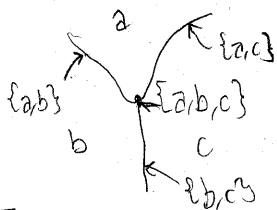 a
{a,c}
{a,b}
{a,b,c}
b
c
{b,c}